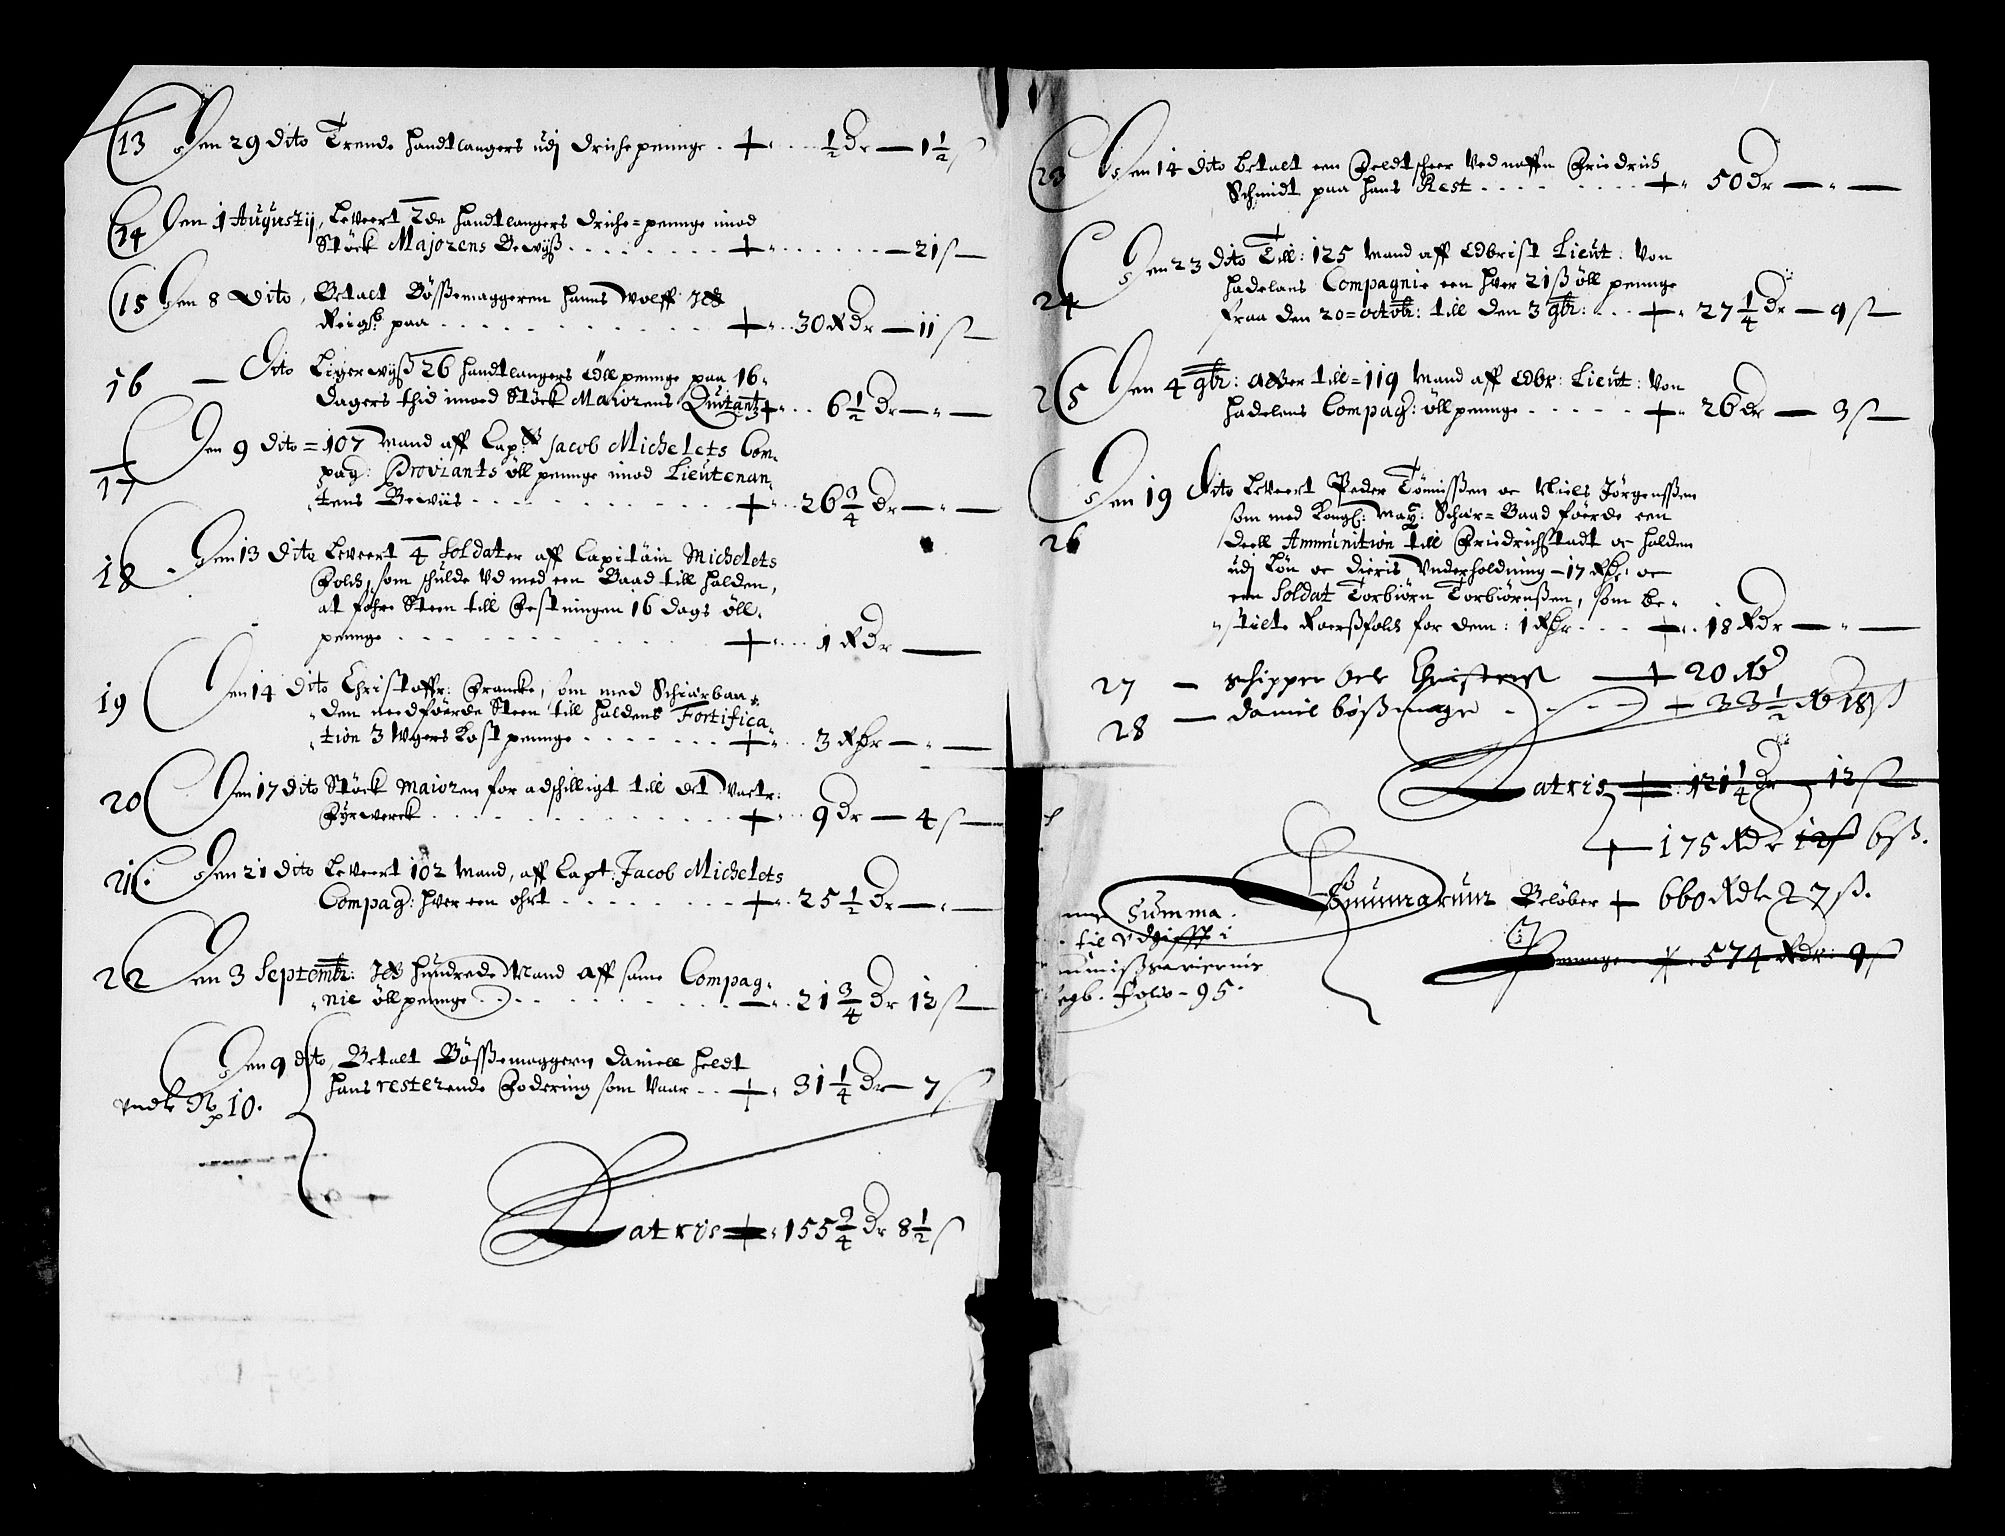 13 Den 29 dito Trende handtlangers udj driche pennge . + . . . ½ Dr — 1½ ß
14 Den 1 Augustij, Leveert 2de handtlangers driche=pennge imod
Stöck Majorens Bewijß . . . . . . . . + . . . . . . — 21 ß —
15 Den 8 dito, Betalt Bösßemaggeren Hanns Wolff
paa . . . . . . . . . . . + . . 30 Rdr — 11 ß —
16 — Dito Ligerwijß 26 handtlangers Öllpennge paa 16
dagers thid imod Stöck Maiorens Quitantz + . . . 6½ Dr — " —
17 Den 9 dito = 107 Mand aff Capt: Jacob Michelets Com-
pag: Proviants öllpennge imod Lieutenan-
tens Bewiis . . . . . . . . . . + . . 26 3/4 Dr — " —
18 Den 13 dito Leveert 4 Soldater aff Capitäin Michelets
Folch, som schulde Vd med een Baad till halden,
at föhre Steen till Festningen 16 dags öll-
pennge . . . . . . . . . . . + . . . 1 Rdr —
19 Den 14 dito Christoffr: Francke, som med Schiärbaa-
den needföerde Steen till haldens Fortifica-
tion 3 Ugers Kostpennge . . . . . . . + . . . 3 Rdr — " —
20 Den 17 dito Stöck Maioren for adschilligt till det
Fyrwerck . . . . . . . . . . . + . . . 9 Dr — 4 ß —
21 Den 21 dito Leveert 102 Mand, aff Capt: Jacob Michelets
Compag: hver een ohrt . . . . . . . . + . . 25½ Dr — " —
22 Den 3 Septembr: hundrede Mand aff same Compag-
nie öllpennge . . . . . . . . . — . . 21 3/4 Dr 12 ß —
Den 9 dito, Betalt Bösßemaggern Daniell Heldt
hans resterende Fodering som Vaar . . + " 31¼ Dr — 7 ß
No 10.
Latris + " 155 2/4 Dr 8½ ß
23 Den 14 dito betalt een Feldtscheer Ved naffn Friedrich
Schmidt paa hans Rest . . . . . . . + " 50 Dr — " —
24 Den 23 dito Till: 125 Mand aff Edbrist Lieut: Von
hadelans Compagnie een hver 21 ß öll pennge
fraa den 20 = octobr: till den 3 9br: . . . + " 27¼ Dr — 9 ß —
25 Den 4 9br: atter till = 119 Mand aff Edbr: Lieut: Von
hadelens Compag: öllpennge . . . . . + " 26 Dr — 3 ß —
26 Den 19 Dito Leveert Peder Tömißen oc Niels Jörgenßen
som med Kongl: May: Schär=Baad föerde een
deell Ammunition till Friedrichstadt oc halden
udj Lön oc dieris Vnderholdning — 17 Rdr: oc
een Soldat Torbiörn Torbiörnßen, som be-
stilte Roerßfolch for dem: 1 Rdr . . . + . . 18 Rdr — " —
27 — Schipper Oele — + 20 Rd
28 — Daniel bößemager . . . . . + 33½ Rd 18 ß
Latris + 121¼ Dr — 12 ß
+ 175 Rdr 12 ß 6 ß.
Summarum Belöber + 660 Rdr 27 ß.
Pennge + 574 Rdr: 9 ß
Summa.
til Vdgifft i
Folio - 95.